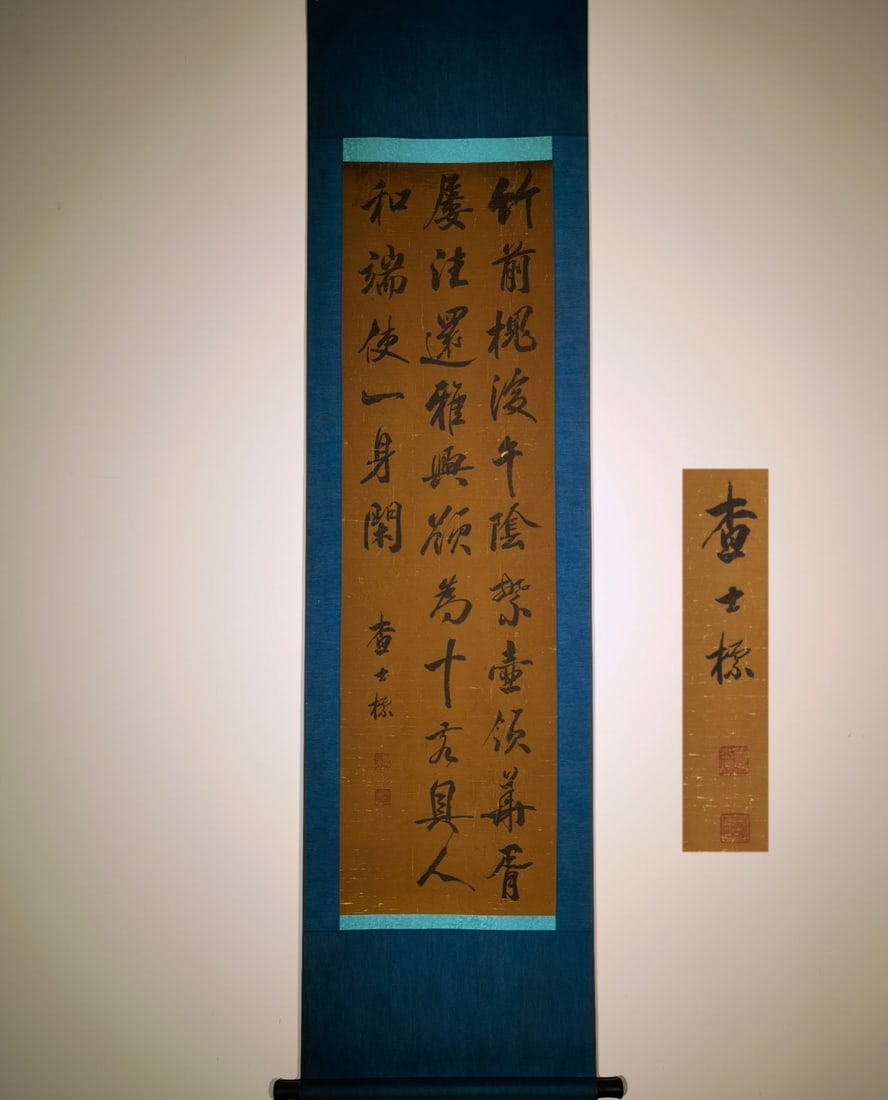 竹前槐後午陰繁壺領華胥
屢往還雅興願為十客具人
和端使一身閑
查士標
查士標